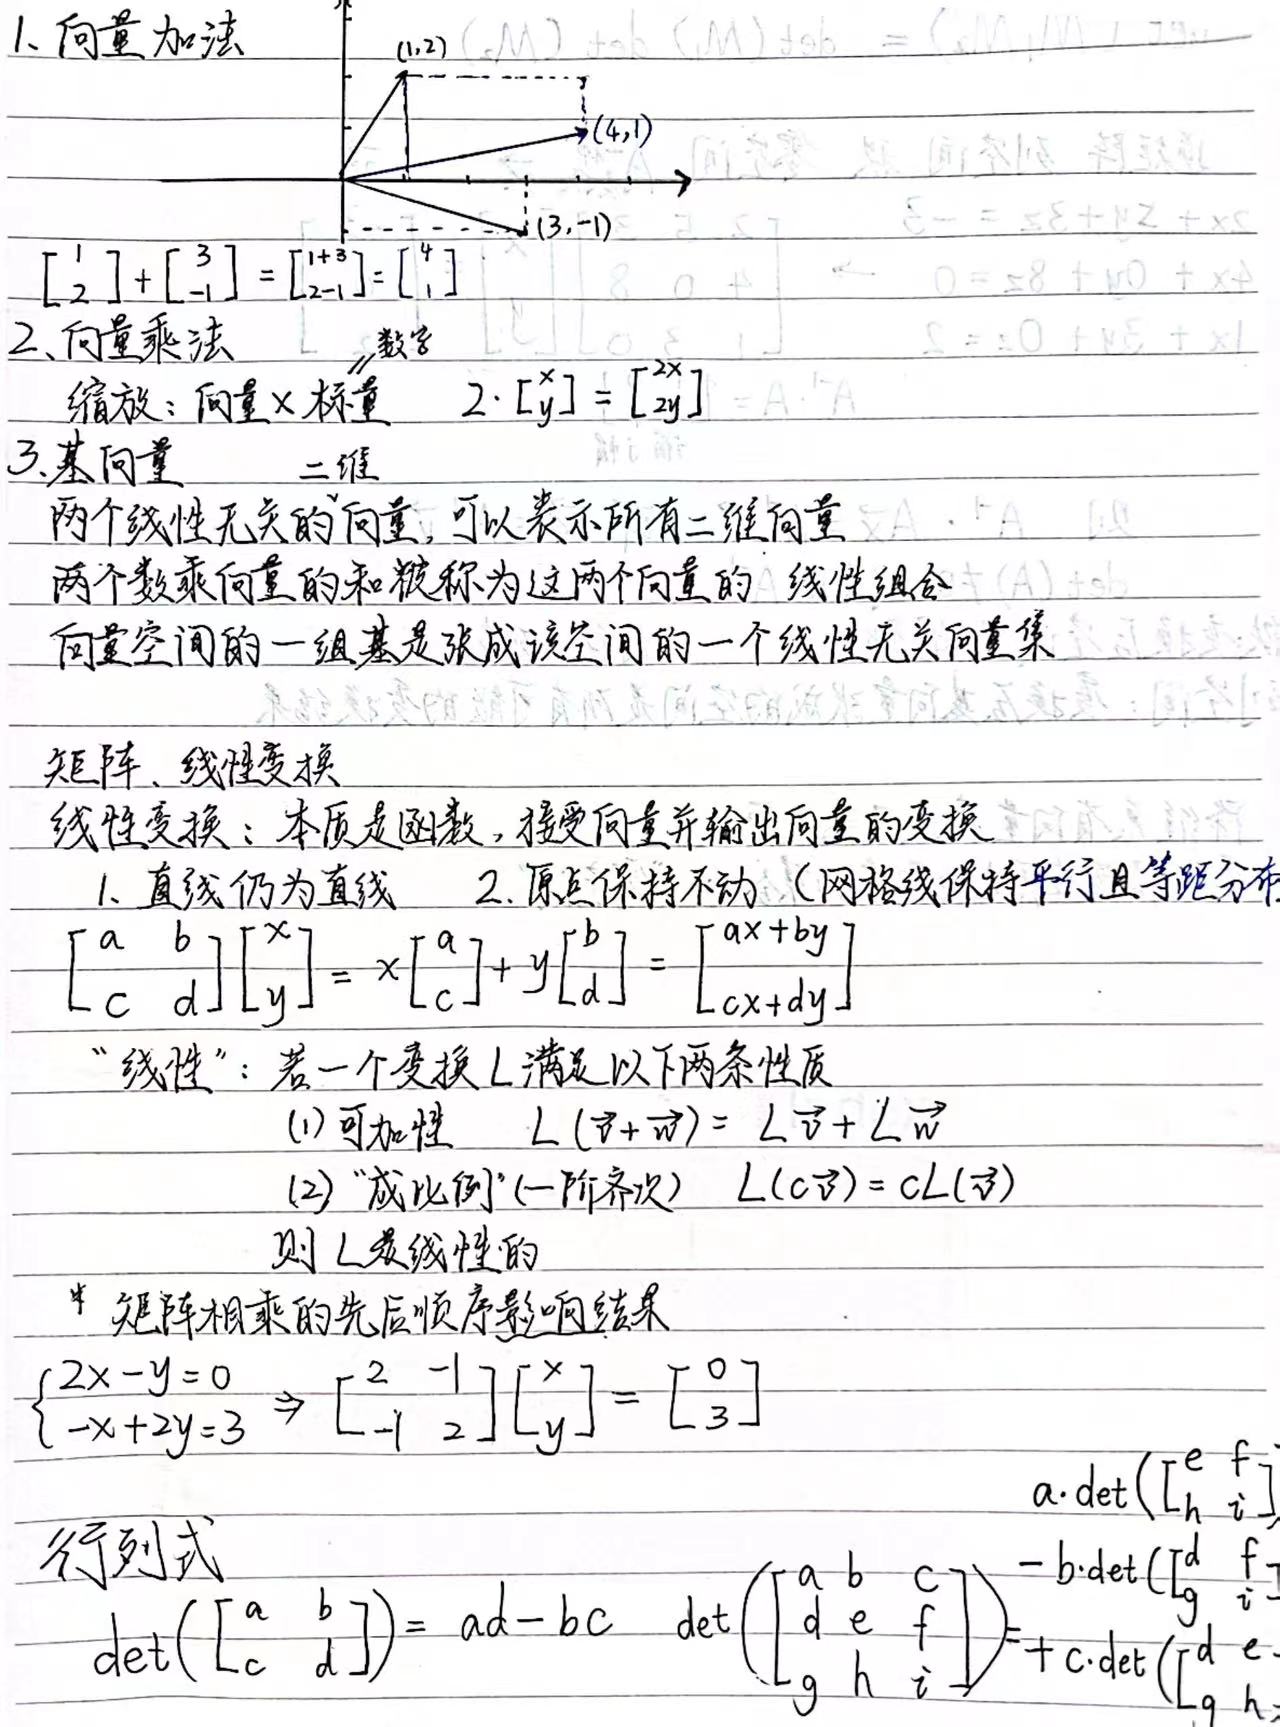 1、向量加法
(1,2)
(4,1)
(3,-1)
[1 2] + [3 -1] = [1+3 2-1] = [4 1]
2、向量乘法
数字
缩放：向量×标量 2·[x y] = [2x 2y]
3、基向量 二维
两个线性无关的向量，可以表示所有二维向量
两个数乘向量的和被称为这两个向量的 线性组合
向量空间的一组基是张成该空间的一个线性无关向量集
矩阵、线性变换
线性变换：本质是函数，接受向量并输出向量的变换
1. 直线仍为直线 2. 原点保持不动（网格线保持平行且等距分布
[a b c d][x y] = x[a c] + y[b d] = [ax+by cx+dy]
“线性”：若一个变换L满足以下两条性质
(1) 可加性 L(v⃗+w⃗) = Lv⃗ + Lw⃗
(2) “成比例”(一阶齐次) L(cv⃗) = cL(v⃗)
则 L是线性的
* 矩阵相乘的先后顺序影响结果
{2x-y=0 -x+2y=3 ⇒ [2 -1 -1 2][x y] = [0 3]
行列式
det([a b c d]) = ad-bc det([a b c d e f g h i]) =
a·det([e f h i]
-b·det([d f g i]
+c·det([d e g h